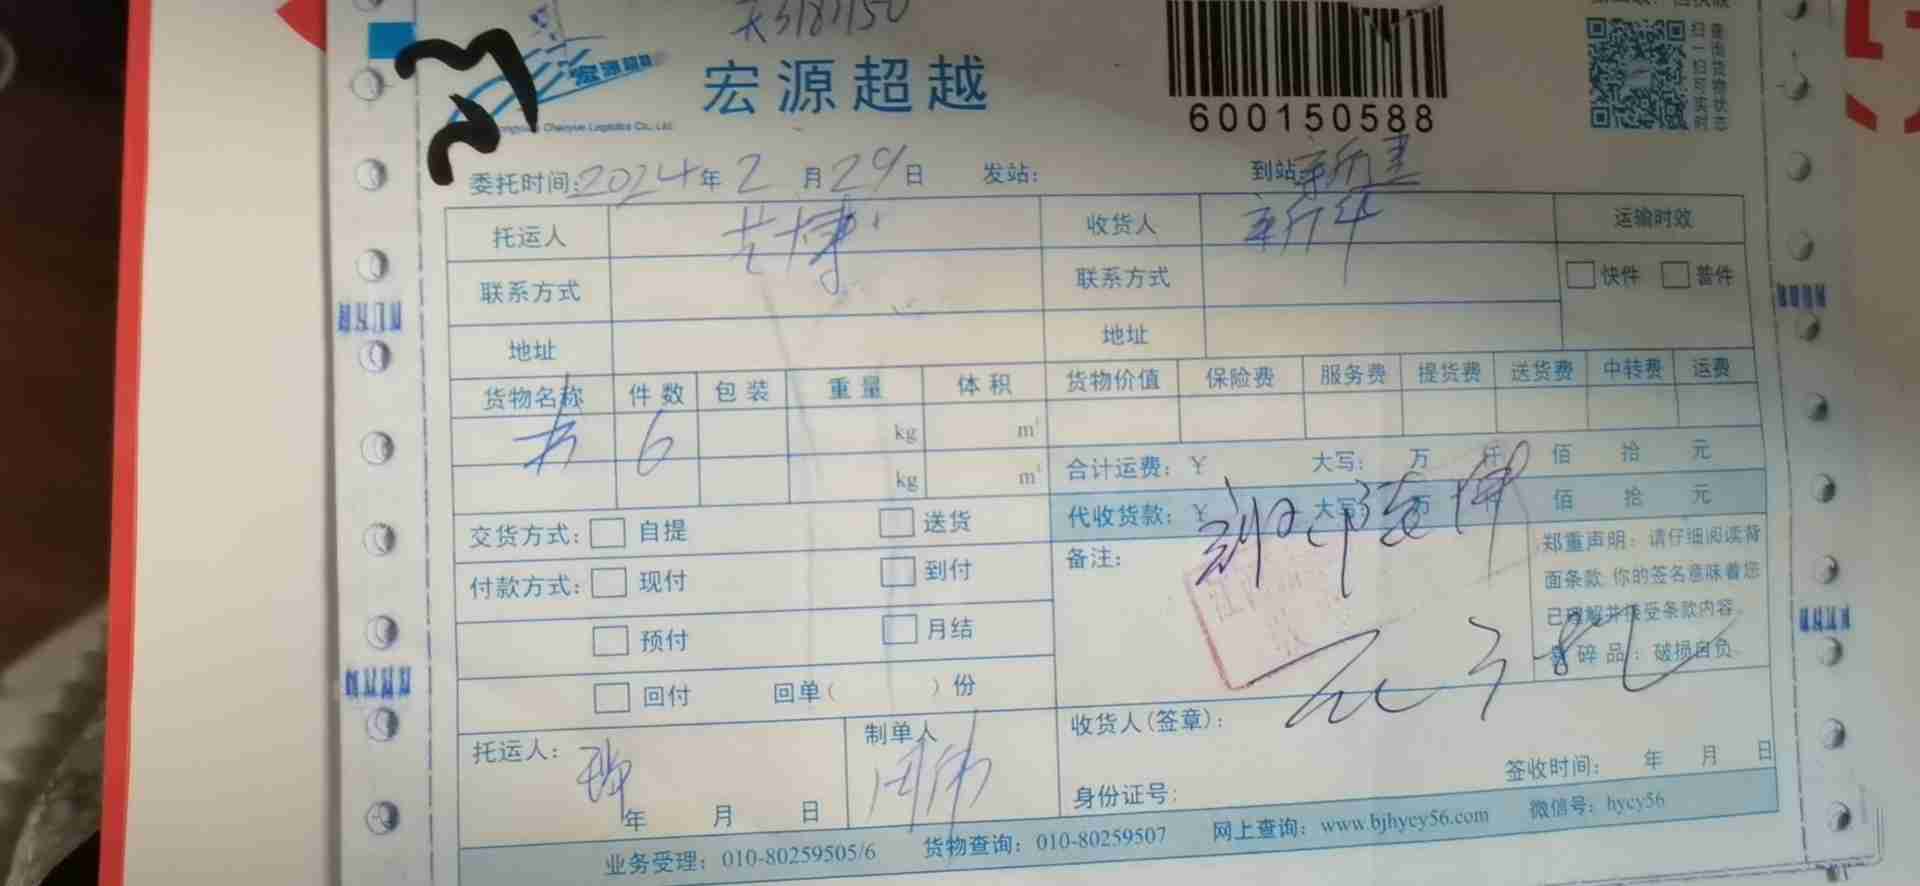 宏源超越
宏源超越
600150588
扫一扫可实时
查询货物状态
委托时间:2024年2月29日 发站: 到站:新建
托运人 艺博 收货人 新华 运输时效
联系方式 联系方式 快件 普件
地址 地址
货物名称 件数 包装 重量 体积 货物价值 保险费 服务费 提货费 送货费 中转费 运费
书 6 kg m³
kg m³ 合计运费:¥ 大写: 万 仟 佰 拾 元
代收货款:¥ 大写 万 佰 拾 元
交货方式: 自提 送货
备注:
付款方式: 现付 到付
预付 月结
回付 回单( )份
郑重声明:请仔细阅读背
面条款 你的签名意味着您
已理解并接受条款内容。
易碎品:破损自负
托运人: 年 月 日
制单人 周伟
收货人(签章):
身份证号: 签收时间: 年 月 日
业务受理:010-80259505/6 货物查询:010-80259507 网上查询:www.bjhycy56.com 微信号:hycy56